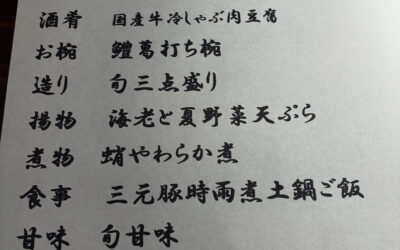 酒肴 国産牛冷しゃぶ肉豆腐
お椀 鱧葛打ち椀
造り 旬三点盛り
揚物 海老と夏野菜天ぷら
煮物 蛸やわらか煮
食事 三元豚時雨煮土鍋ご飯
甘味 旬甘味